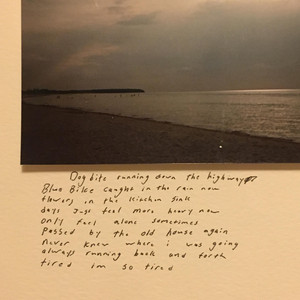 Dog bite running down the highway
Blue Bike caught in the rain now
flowers in the kitchin sink
days just feel more heavy now
only feel alone somtimes
Passed by the old house again
never knew where i was going
always running back and forth
tired im so tired